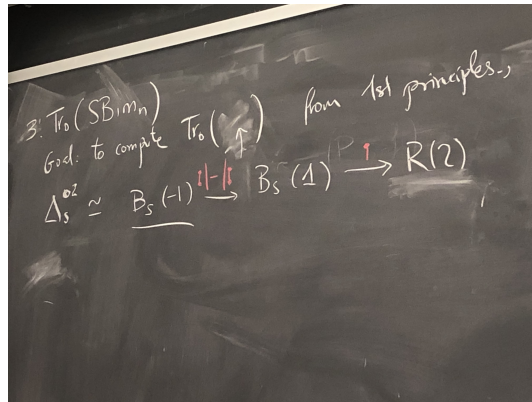 3: Tr₀(SBimₙ)
Goal: to compute Tr₀( ↑ ) from 1st principles.,
Δₛ^{⊗2} ≃ Bₛ(-1) → Bₛ(1) → R(2)